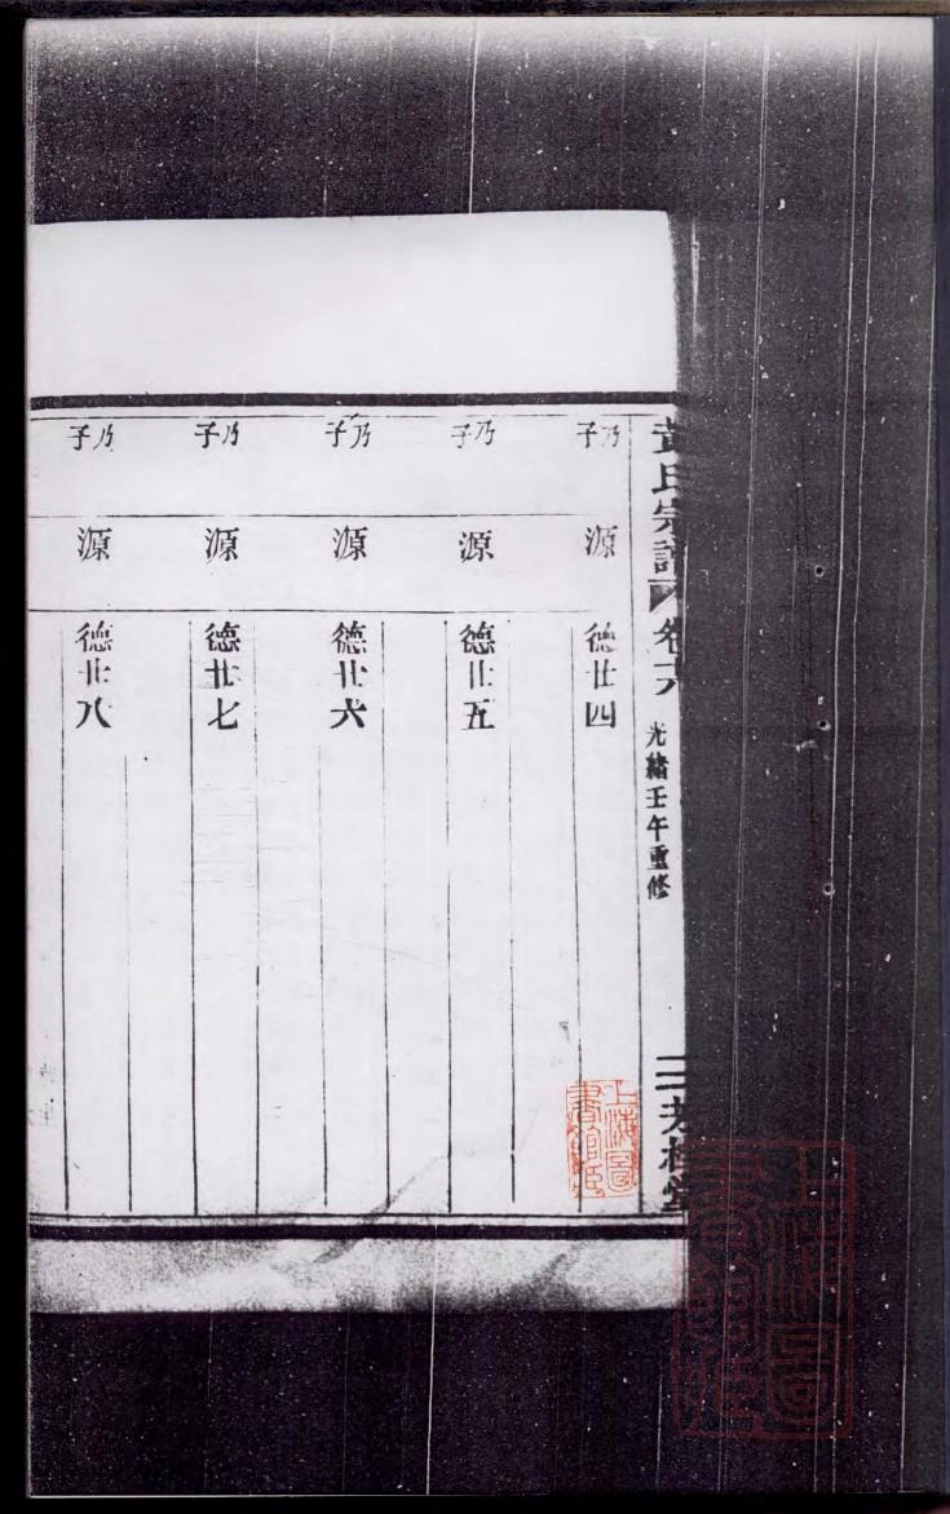 黃氏宗譜 卷六 光緒壬午重修 三
乃子 源 德廿四
乃子 源 德廿五
乃子 源 德廿六
乃子 源 德廿七
乃子 源 德廿八
上海圖
書館藏